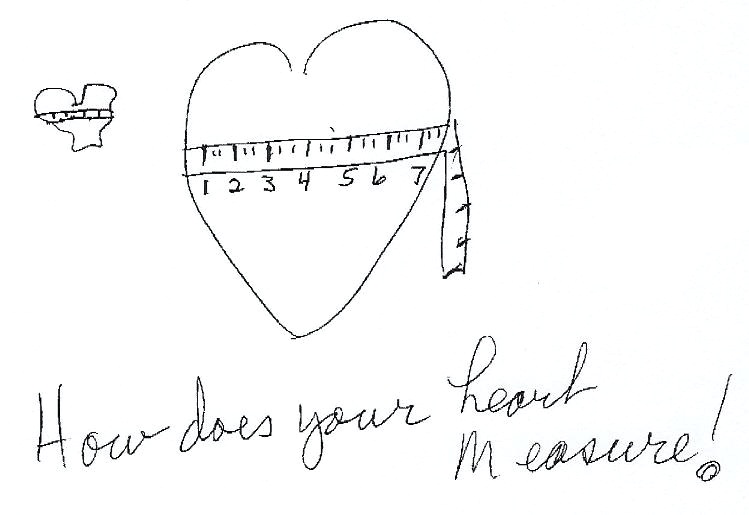 1 2 3 4 5 6 7
How does your heart
Measure!